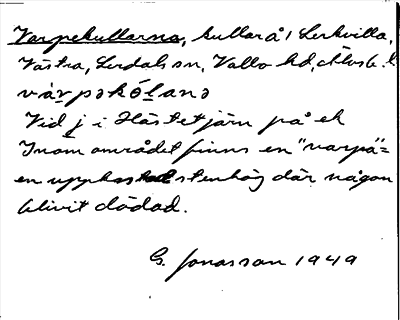 Varpekullarna, kullar å 1 Lerkvilla,
Västra, Lerdals sn, Valbo hd, Älvsb. l.
várpəkólanə
Vid j i Hästetjärn på ek
Inom området finns en "varpä" =
en uppkastad stenhög där någon
blivit dödad.
G. Jonasson 1949